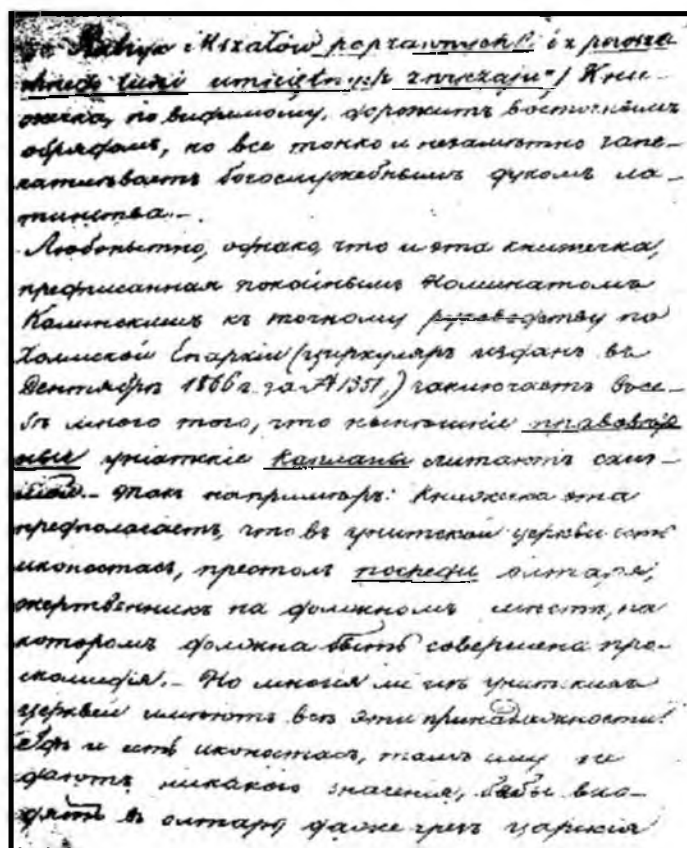 Rubryk i Mszałów poprawnych i z
ludzi umiejętnych zwyczaju") Кни-
жечка, по видимому, дорожитъ восточнымъ
обрядомъ, но все тонко и незамѣтно запе-
чатлѣваетъ богослужебнымъ духомъ ла-
тинства.-
Любопытно, однако, что и эта книжечка,
предписанная покойнымъ Номинатомъ
Калинскимъ къ точному руководству по
Холмской Епархіи (циркуляръ изданъ въ
Сентябрѣ 1866 г. за № 1351,) заключаетъ въ се-
бѣ много того, что нынѣшніе правовѣр
ные уніатскіе капланы считаютъ схиз-
мой.- Такъ напримѣръ: книжечка эта
предполагаетъ, что въ унитской церкви есть
иконостасъ, престолъ посреди олтаря,
жертвенникъ на должномъ мѣстѣ, на
которомъ должна быть совершена про-
скомидія.- Но многія ли изъ унитскихъ
церквей имѣютъ всѣ эти принадлежности?
Гдѣ и есть иконостасъ, тамъ ему не
даютъ никакого значенія, бабы вхо-
дятъ въ олтарь даже чрезъ царскія